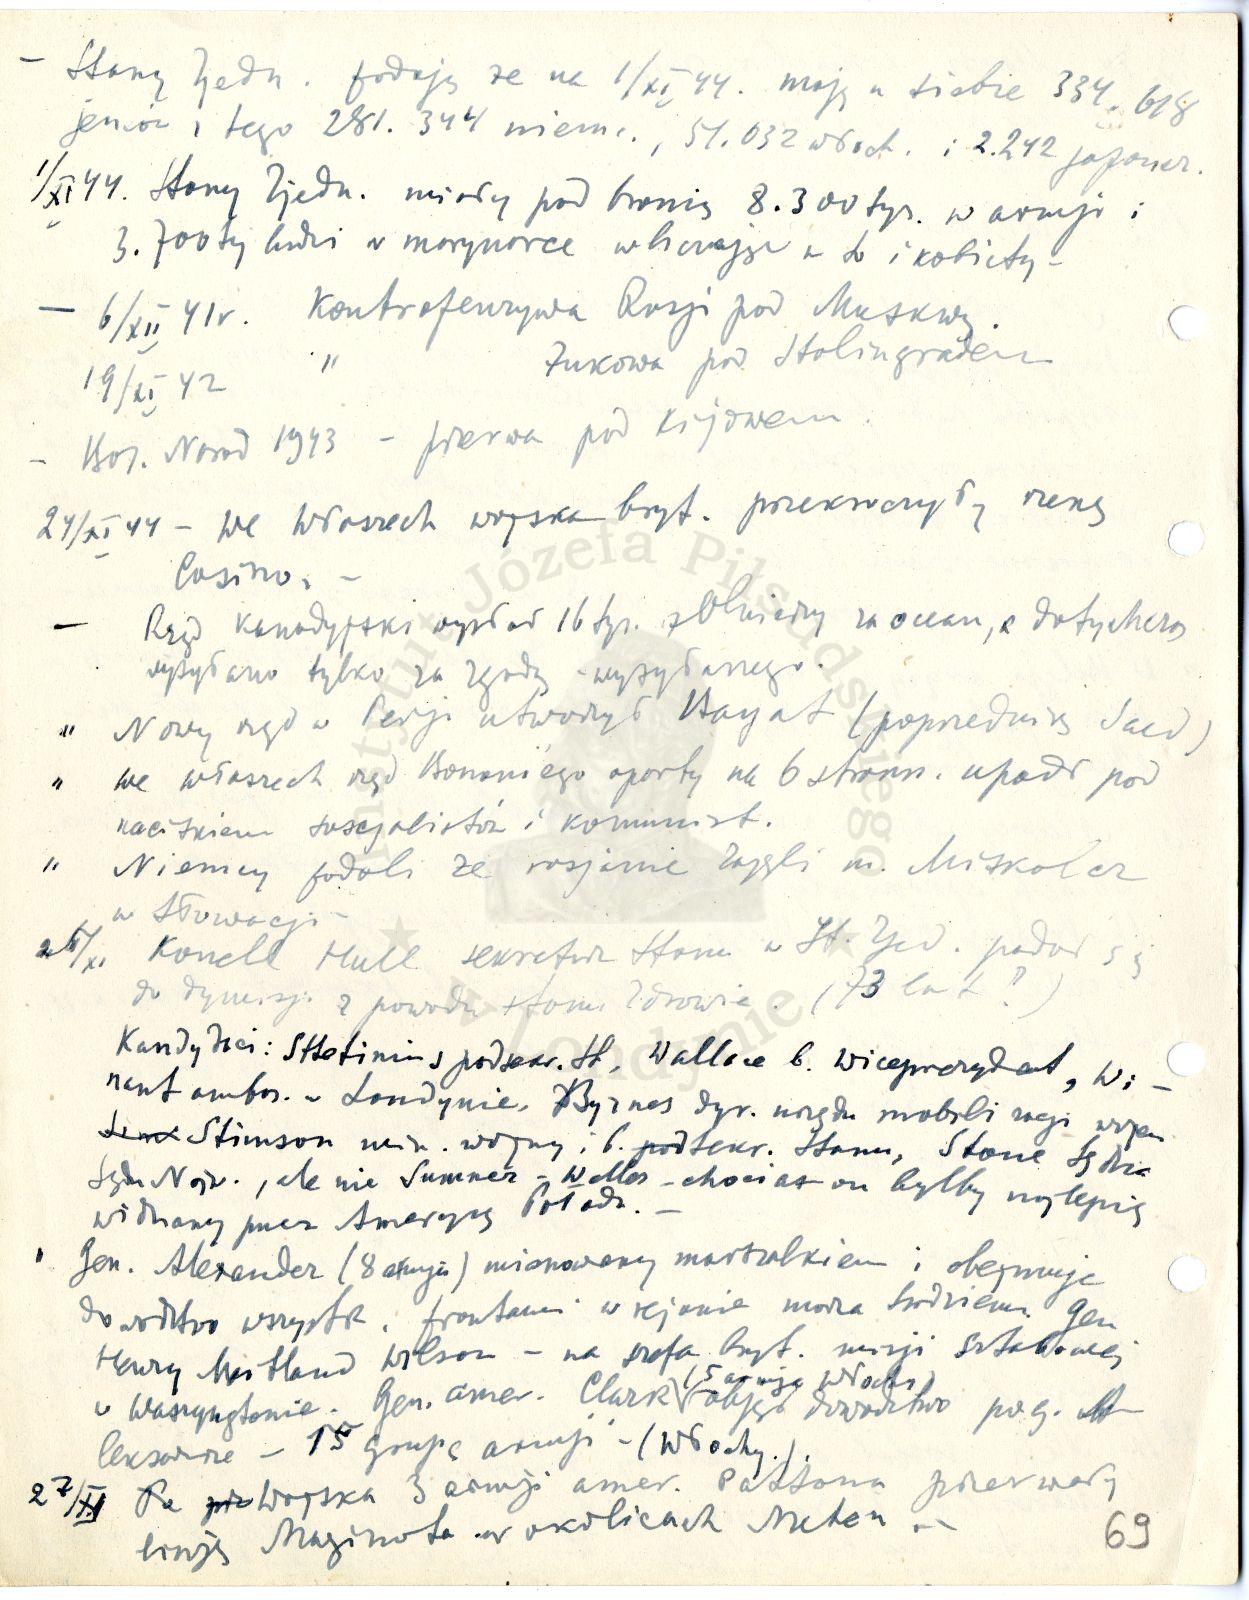 — Stany Zjedn. podają że na 1/XI 44. mają u siebie 334.618
jeńców z tego 281.344 niemc., 51.032 włoch. i 2.242 japoncz.
1/XI 44. Stany Zjedn. miały pod bronią 8.300 tys. w armji i
3.700 ty ludzi w marynarce wliczając w to i kobiety —
— 6/XII 41 r. Kontrofenzywa Rosji pod Moskwą.
19/XI 42 " Żukowa pod Stalingradem
— Boż. Narod 1943 — pierwa pod Kijowem.
24/XI 44 — We Włoszech wojska bryt. przekroczyły rzekę
Cosino. —
— Rząd Kanadyjski wysłał 16 tys. żołnierzy za ocean, a dotychczas
wysyłano tylko za zgodą wysyłanego.
" Nowy rząd w Persji utworzył Bayat (poprzednik Saed)
" we włoszech rząd Bonomiego oparty na 6 stronn. upadł pod
naciskiem socjalistów i komunist.
" Niemcy podali że rosjanie zajęli m. Miskolcz
w Słowacji —
26/XI Korell Hull sekretarz stanu w St. Zjed. podał się
do dymisji z powodu stanu zdrowia. (73 lat!)
Kandydaci: Stettinius podsekr. St., Wallace b. wiceprezydent, Wi—
nant ambas. w Londynie, Byrnes dyr. urzędu mobilizacji wojen
Stimson min. wojny i b. sekr. stanu, Stone sędzia
Sądu Najw., ale nie Sumner — Welles — chociaż on byłby najlepiej
widziany przez Amerykę Połudn. —
" Gen. Alexander (8 armja) mianowany marszałkiem i obejmuje
dowództwo wszystk. frontami w rejonie morza śródziemn. Gen
Henry Maitland Wilson — na szefa bryt. misji sztabowej
w Waszyngtonie. Gen. amer. Clark (5 armja włochy) objął dowództwo po g. A
leksandrze — 15 grupę armji — (Włochy).
27/XI Wojska 3 armji amer. Pattona przerwały
linję Maginota w okolicach Meten —
69
Instytut Józefa Piłsudskiego
w Londynie